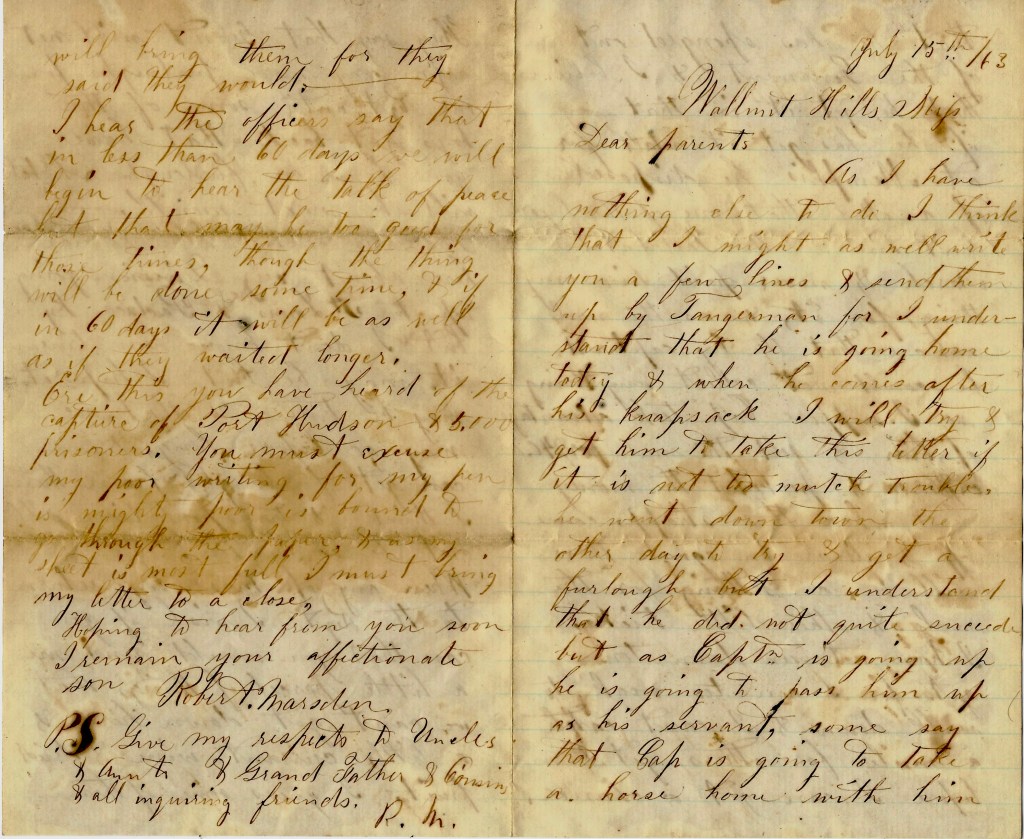 July 15th /63
Wallnut Hills Miss
Dear parents
As I have
nothing else to do I think
that I might as well write
you a few lines & send them
up by Tangerman for I under-
stand that he is going home
today & when he comes after
his knapsack I will try &
get him to take this letter if
it is not too mutch trouble,
he went down town the
other day to try & get a
furlough but I understand
that he did not quite succede
but as Captn is going up
he is going to pass him up
as his servant, some say
that Cap is going to take
a horse home with him
will bring them for they
said they would.
I hear the officers say that
in less than 60 days we will
begin to hear the talk of peace
but that may be too good for
those times, though the thing
will be done some time, & if
in 60 days it will be as well
as if they waited longer.
Ere this you have heard of the
capture of Port Hudson & 5.000
prisoners. You must excuse
my poor writing for my pen
is mighty poor is bound to
go through the paper, & as my
sheet is most full I must bring
my letter to a close,
Hoping to hear from you soon
I remain your affectionate
son Robert. Marsden.
P.S. Give my respects to Uncles
& Aunts & Grand Father & Cousins
& all inquiring friends.
R. M.